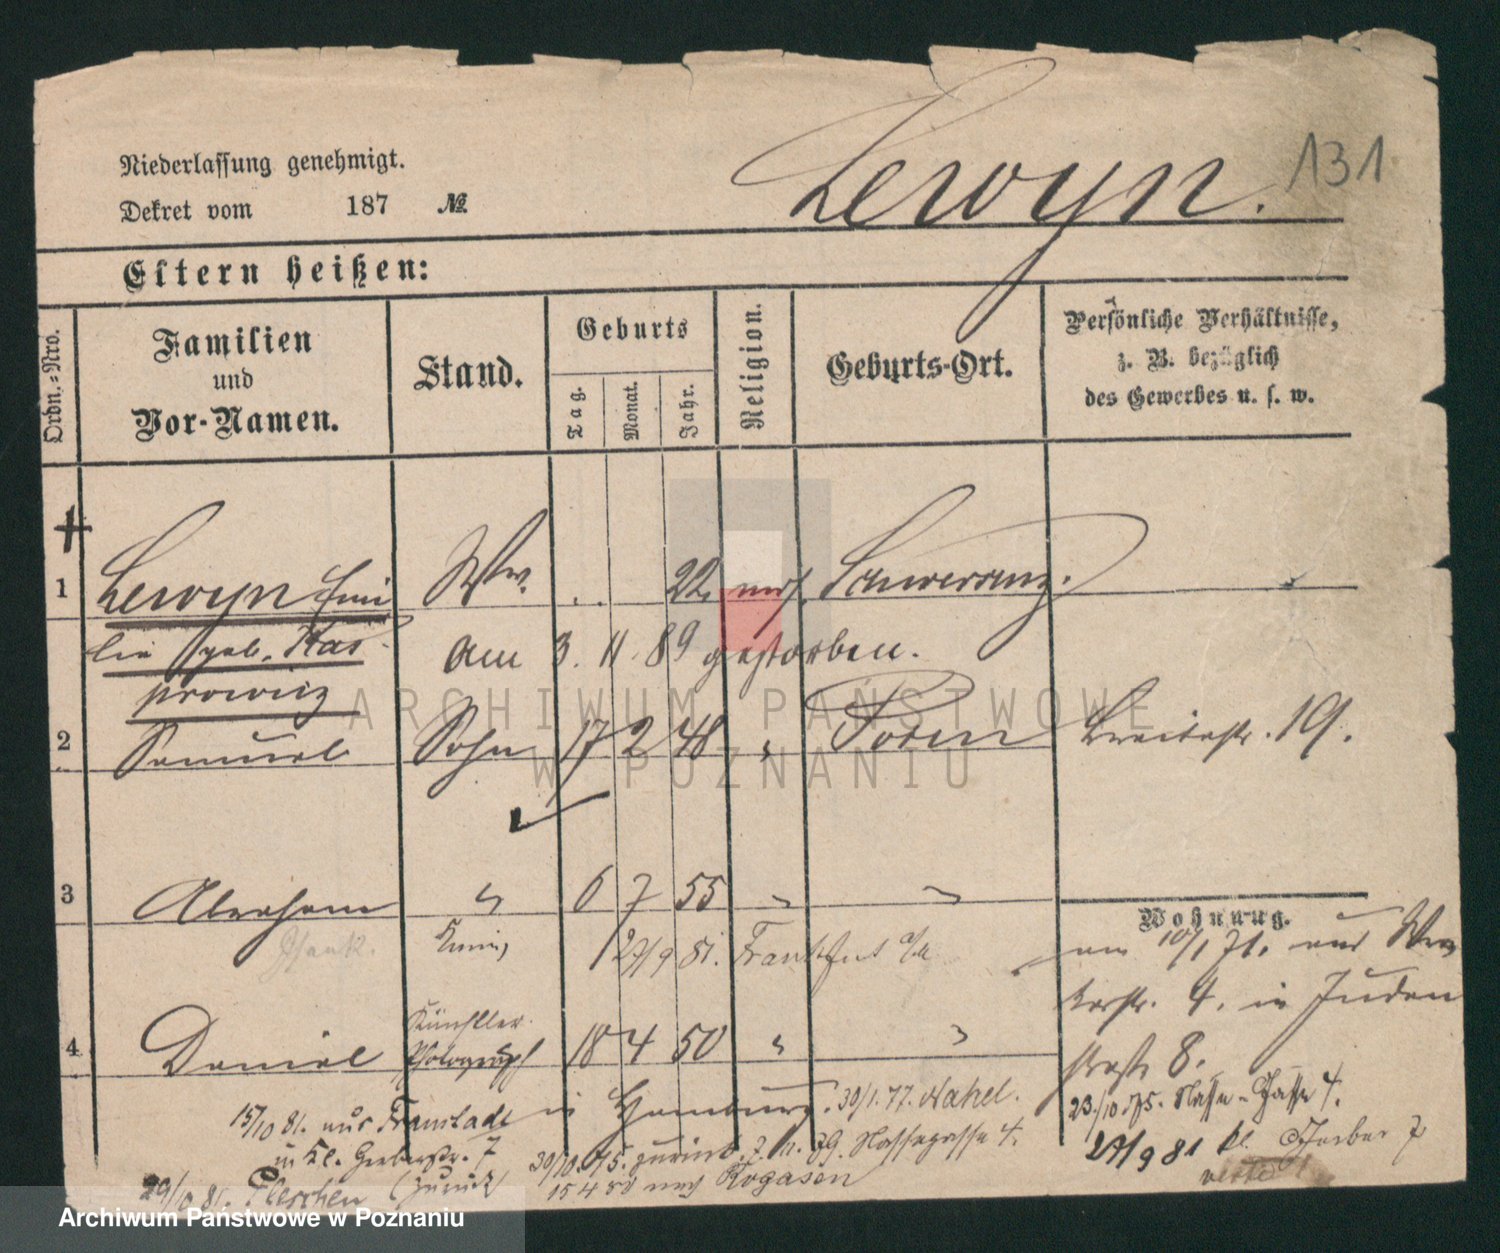 131
Niederlassung genehmigt.
Dekret vom 187 №
Lewyn.
Eltern heißen:
Ordn.-Nro.
Familien
und
Vor-Namen.
Stand.
Geburts
Tag.
Monat.
Jahr.
Religion.
Geburts-Ort.
Persönliche Verhältnisse,
z. B. bezüglich
des Gewerbes u. s. w.
1 Lewyn Emi Ww. 22 mos. Schwersenz.
lie geb. Kas
prowicz
am 3. 11. 89 gestorben.
2 Samuel Sohn 17 2 48 " Posen Breitestr. 19.
3 Abraham " 6 7 55 " "
27/9 81. Frankfurt a/M
4 Daniel Künstler Photograph 18 4 50 " "
Wohnung.
am 10/1 71. aus
str. 4. in Juden
straße 8.
23/10 75. Nasse-Gasse 4.
27/9 81 kl. Gerber 7
in Hamburg. 30/1. 77. Nakel.
15/10 81. aus Fraustadt
in Kl. Gerberstr. 7
30/10. 75. zurück. 7. 11. 79. Nassegasse 4.
29/10 81. Pleschen (zurück)
15 4 80 nach Rogasen
ARCHIWUM PAŃSTWOWE
W POZNANIU
Archiwum Państwowe w Poznaniu